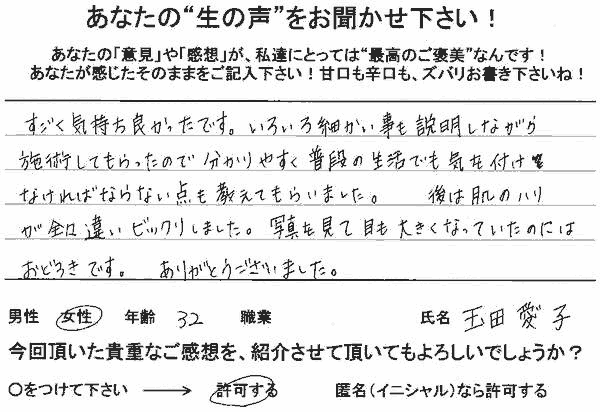 あなたの“生の声”をお聞かせ下さい！
あなたの「意見」や「感想」が、私達にとっては“最高のご褒美”なんです！
あなたが感じたそのままをご記入下さい！甘口も辛口も、ズバリお書き下さいね！
すごく気持ち良かったです。いろいろ細かい事も説明しながら
施術してもらったので分かりやすく普段の生活でも気を付け
なければならない点も教えてもらいました。 後は肌のハリ
が全然違いビックリしました。写真を見て目も大きくなっていたのには
おどろきです。 ありがとうございました。
男性 女性 年齢 32 職業 氏名 玉田 愛子
今回頂いた貴重なご感想を、紹介させて頂いてもよろしいでしょうか？
○をつけて下さい → 許可する 匿名(イニシャル)なら許可する